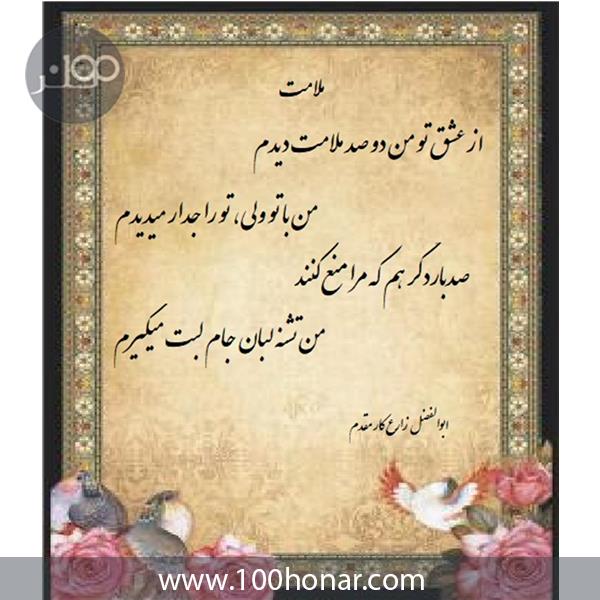 ۱۰۰هنر
ملامت
از عشق تو من دو صد ملامت دیدم
من با تو ولی، تو را جدار میدیدم
صد بار دگر هم که مرا منع کنند
من تشنه لبان جام لبت میگیرم
ابوالفضل زارع کار مقدم
www.100honar.com